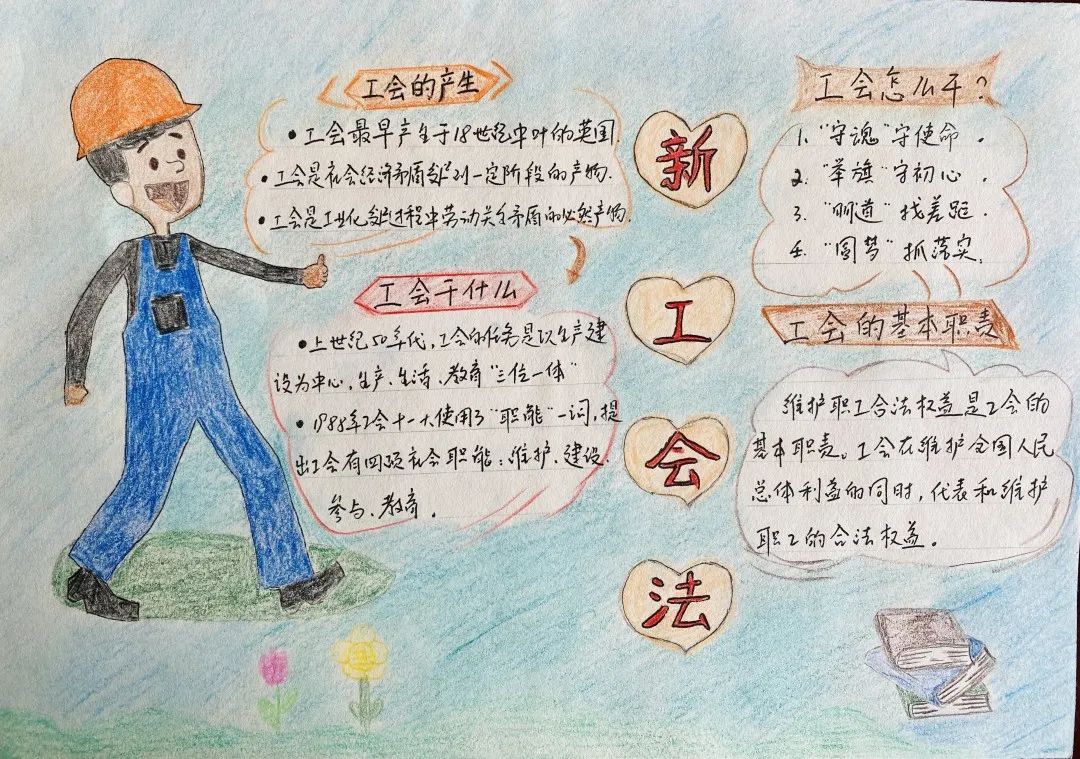 工会的产生
• 工会最早产生于18世纪中叶的英国.
• 工会是社会经济矛盾发展到一定阶段的产物.
• 工会是工业化发展过程中劳动关系矛盾的必然产物.
工会干什么
• 上世纪50年代,工会的任务是以生产建
设为中心,生产、生活、教育"三位一体"
• 1988年工会十一大使用了"职能"一词,提
出工会有四项社会职能:维护、建设、
参与、教育。
新
工
会
法
工会怎么干?
1. "守魂"守使命.
2. "举旗"守初心.
3. "明道"找差距.
4. "圆梦"抓落实.
工会的基本职责
维护职工合法权益是工会的
基本职责。工会在维护全国人民
总体利益的同时,代表和维护
职工的合法权益。